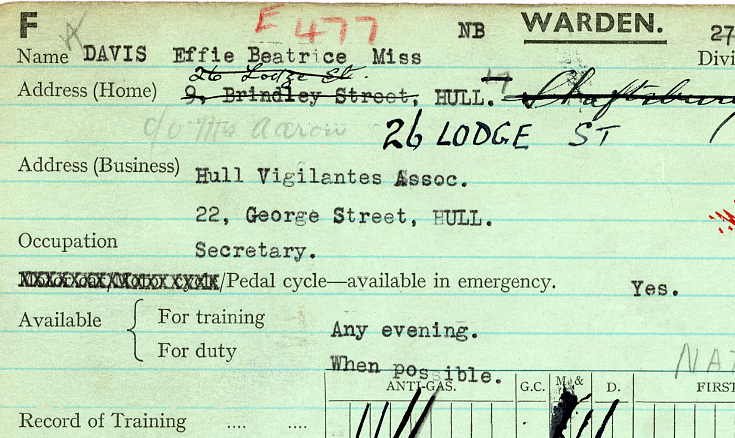 F E 477 NB WARDEN. 27
Name DAVIS Effie Beatrice Miss Divi
26 Lodge St.
Address (Home) 9, Brindley Street, HULL. Shaftsbury
c/o Mrs Aaron 26 LODGE ST
Address (Business) Hull Vigilantes Assoc.
22, George Street, HULL.
Occupation Secretary.
/Pedal cycle—available in emergency. Yes.
Available { For training Any evening.
For duty When possible. NAT
ANTI-GAS. G.C. M. & D. FIRST
Record of Training .... ....